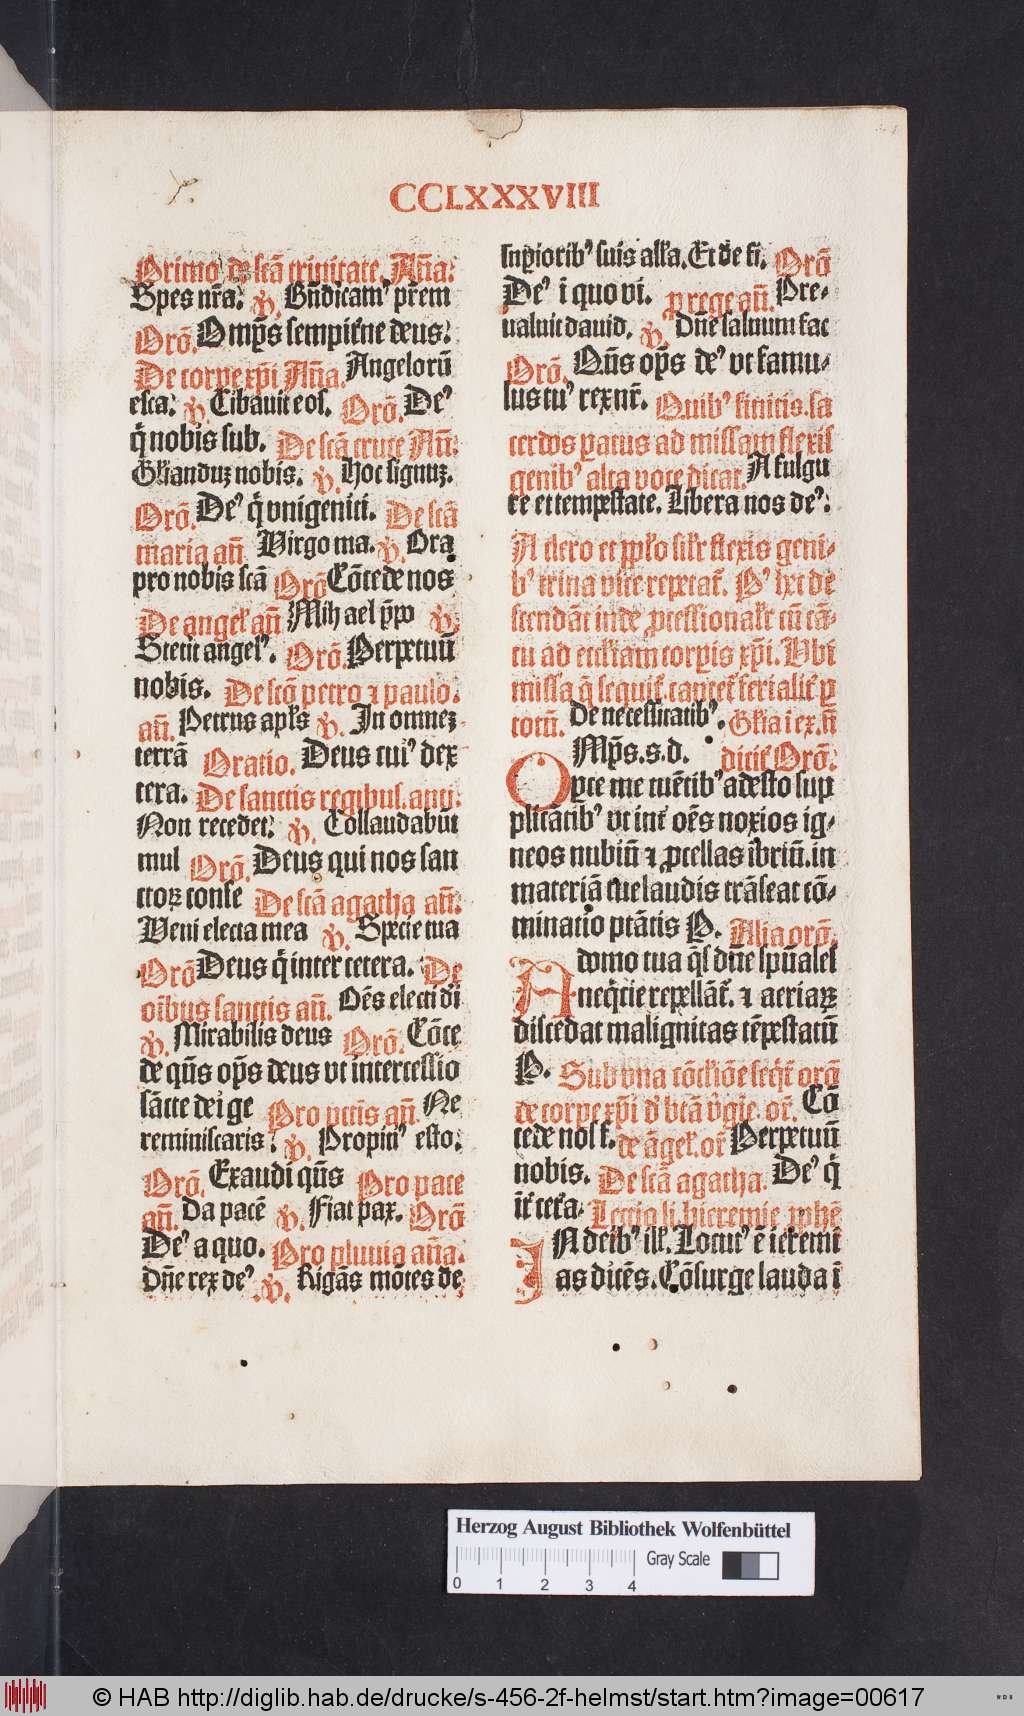 CCLXXXVIII
Primo de scā trinitate. Aña:
Spes nr̄a: ꝟ. Bn̄dicam᾽ pr̄em
Orō. Omp̄s sempit᾽ne deus:
De corpe xp̄i Añā. Angeloꝝ
esca: ꝟ. Cibauit eos. Orō. De᾽
q̇ nobis sub. De scā cruce Añ:
Gl᾽iandūꝫ nobis. ꝟ. Hoc signuꝫ.
Orō. De᾽ q̇ vnigeniti. De scā
maria añ Virgo ma. ꝟ. Ora
pro nobis scā Orō Cōcede nos
De angel᾽ añ Mihael p̄po ꝟ.
Stetit angel᾽. Orō. Perpetuū
nobis. De scō petro ⁊ paulo.
añ. Petrus apl᾽s ꝟ. In omneꝫ
terrā Oratio. Deus cui᾽ dex
tera. De sanctis regibus. anu:
Non recedet: ꝟ. Collaudabūt
mul Orō. Deus qui nos san
ctoꝝ conse De scā agatha añ:
Veni electa mea ꝟ. Specie tua
Orō Deus q̇ inter cetera. De
oībus sanctis añ. Oēs electi dī
ꝟ. Mirabilis deus Orō. Cōce
de qūs op̄s deus vt intercessio
sācte dei ge Pro pctīs añ. Ne
reminiscaris: ꝟ. Propiti᾽ esto:
Orō. Exaudi qūs Pro pace
añ. Da pacē ꝟ. Fiat pax. Orō
De᾽ a quo. Pro pluuia añā.
Dn̄e rex de᾽ ꝟ. Rigās mōtes de
suꝑiorib᾽ suis all᾽a. Et de fi. Orō
De᾽ ī quo vi. p rege añ. Pre-
ualuit dauid. ꝟ. Dn̄e saluum fac
Orō. Qūs op̄s de᾽ vt famu-
lus tu᾽ rex nr̄. Quib᾽ finitis. sa
cerdos ꝑatus ad missam flexis
genib᾽ alta voce dicat. A fulgu
re et tempestate. Libera nos de᾽:
A clero et pp̄lo sil᾽r flexis geni-
b᾽ trina vice repetat᾽. P᾽ hec de
scendāt inde ꝓcessionalr᾽ cū cā-
tu ad eccl᾽iam corpis xp̄i. Vbi
missa q̄ sequit᾽. cantet᾽ ferialit᾽ ꝑ
totū. De necessitatib᾽. Gl᾽ia i ex. n̄
Omp̄s. s. d. dicit᾽ Orō:
Opte me tuētib᾽ adesto sup
plicātib᾽ vt int᾽ oēs noxios ig-
neos nubiū ⁊ ꝓcellas ībriū. in
materiā tue laudis trāseat cō-
minatio ptātis P. Alia orō.
A domo tua q̄s dn̄e spūales
neq̇cie repellāt᾽. ⁊ aeriaꝝ
discedat malignitas tēpestatū
P. Sub vna cōcl᾽iōe seq̄t᾽ orō
de corpe xp̄i d᾽ btā v̄gīe. or᾽. Cō
cede nos f. de āgel᾽. or᾽ Perpetuū
nobis. De scā agatha. De᾽ q̇
īt᾽ cet᾽a. Lectio li. hieremie ꝓphē
In deib᾽ ill᾽. Locut᾽ ē iēremi
as dicēs. Cōsurge lauda ī
Herzog August Bibliothek Wolfenbüttel
0 1 2 3 4 Gray Scale
© HAB http://diglib.hab.de/drucke/s-456-2f-helmst/start.htm?image=00617